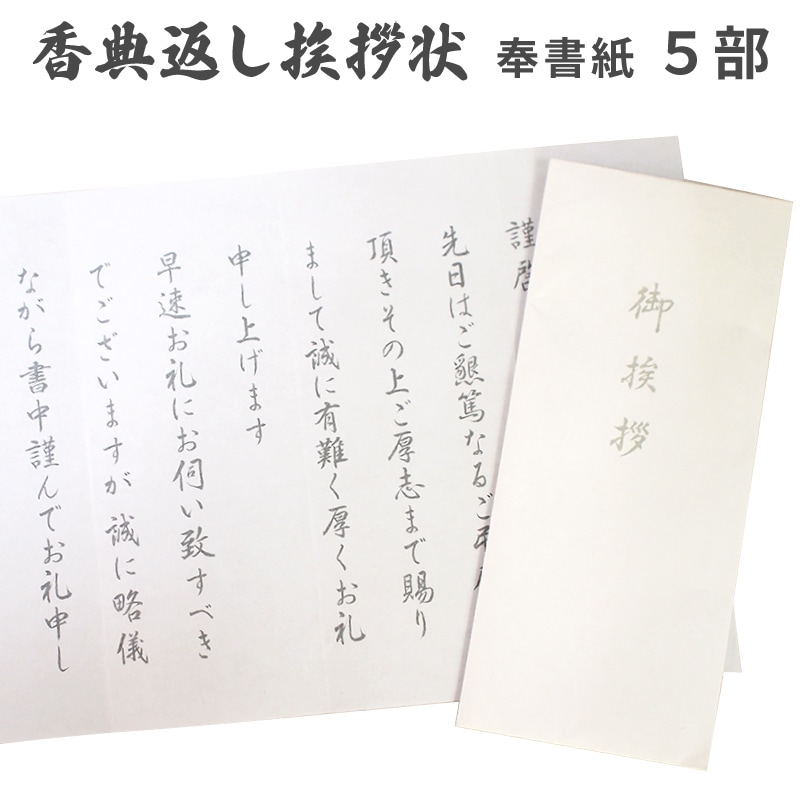 香典返し挨拶状 奉書紙 5部
謹啓
先日はご懇篤なるご
頂きその上ご厚志まで賜り
まして誠に有難く厚くお礼
申し上げます
早速お礼にお伺い致すべき
でございますが誠に略儀
ながら書中謹んでお礼申し
御挨拶